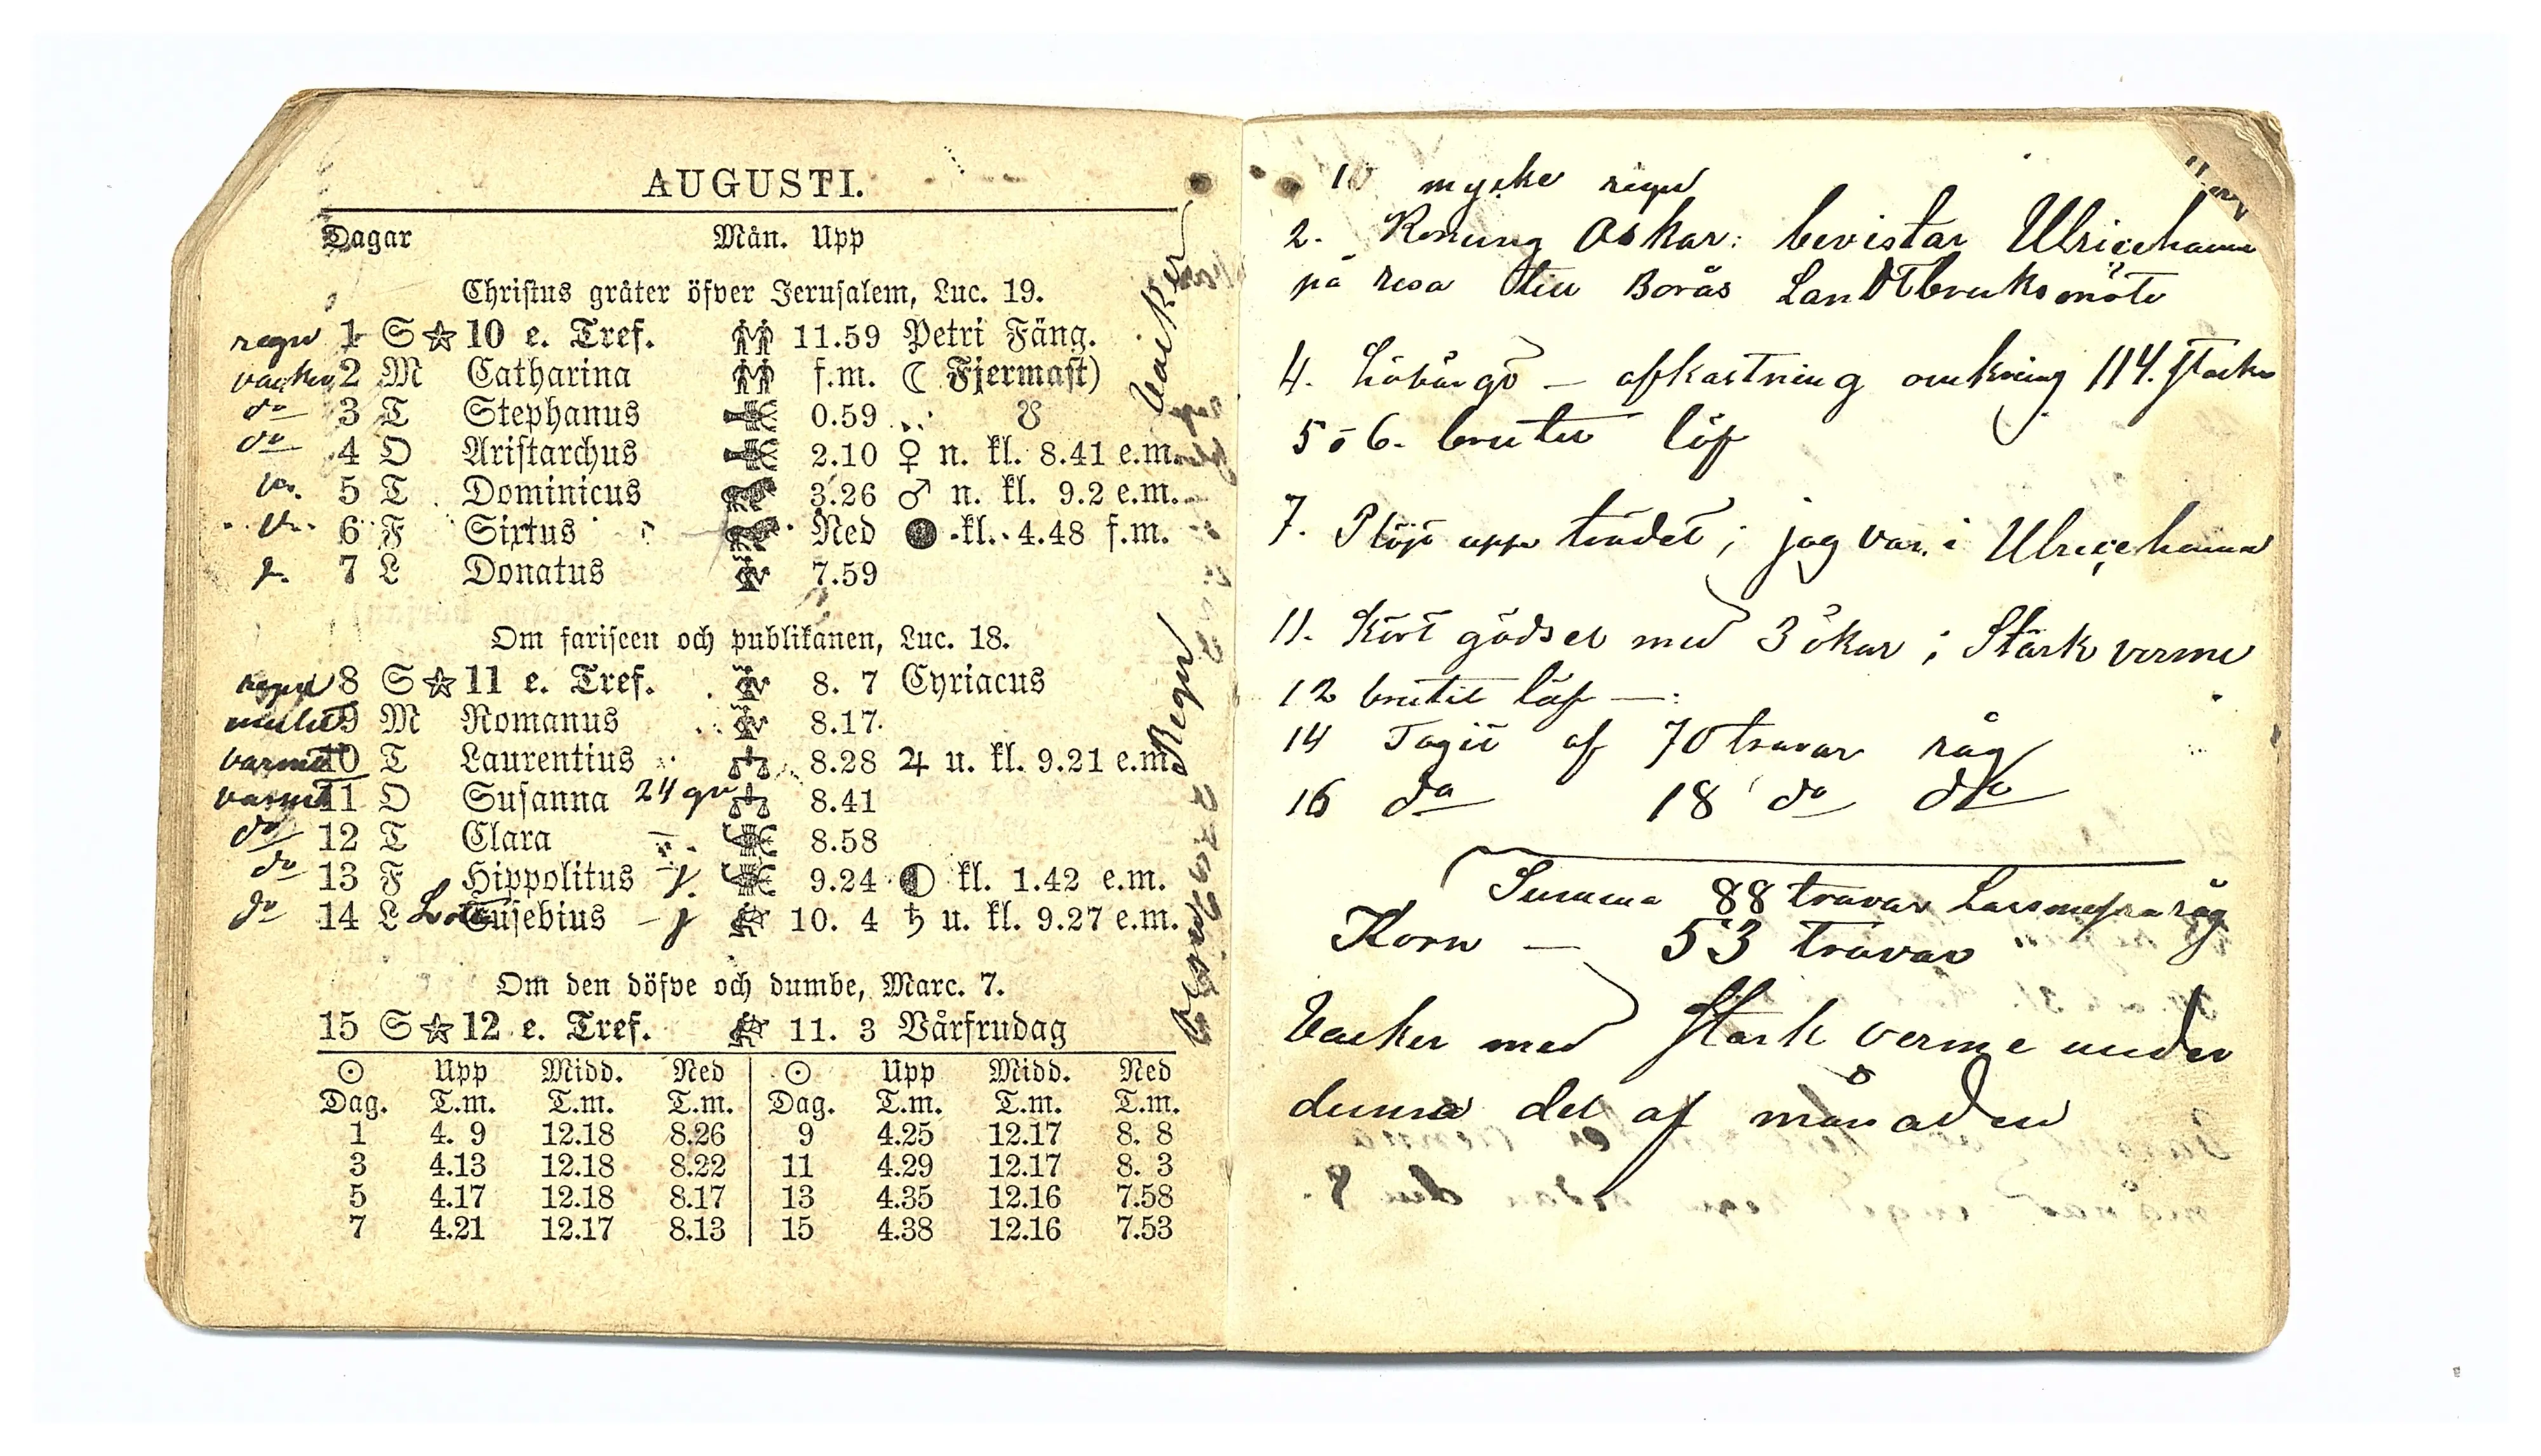 AUGUSTI.
Dagar Mån. Upp
Christus gråter öfver Jerusalem, Luc. 19.
regn 1 S ☆ 10 e. Tref. 11.59 Petri Fäng.
vacker 2 M Catharina f.m. ☾ Fjermast)
do 3 T Stephanus 0.59 ☋
do 4 O Aristarchus 2.10 ♀ n. kl. 8.41 e.m.
5 T Dominicus 3.26 ♂ n. kl. 9.2 e.m.
6 F Sixtus Ned ● kl. 4.48 f.m.
7 L Donatus 7.59
Om fariseen och publikanen, Luc. 18.
regn 8 S ☆ 11 e. Tref. 8. 7 Cyriacus
mulet 9 M Romanus 8.17
varmt 10 T Laurentius 8.28 ♃ u. kl. 9.21 e.m.
varmt 11 O Susanna 24 gr 8.41
do 12 T Clara 8.58
do 13 F Hippolitus 9.24 ◐ kl. 1.42 e.m.
do 14 L Eusebius 10. 4 ♄ u. kl. 9.27 e.m.
Om den döfve och dumbe, Marc. 7.
15 S ☆ 12 e. Tref. 11. 3 Vårfrudag
☉ Upp Midd. Ned ☉ Upp Midd. Ned
Dag. T.m. T.m. T.m. Dag. T.m. T.m. T.m.
1 4. 9 12.18 8.26 9 4.25 12.17 8. 8
3 4.13 12.18 8.22 11 4.29 12.17 8. 3
5 4.17 12.18 8.17 13 4.35 12.16 7.58
7 4.21 12.17 8.13 15 4.38 12.16 7.53
Vacker
Regn
10 myske regn
2. Konung Oskar: bevistar Ulricehamn
på resa till Borås Landtbruksmöte
4. Höbärgö – afkastning omkring 114. stackar
5 o 6. brutit löf
7. Plöjt upp trädet; jag var i Ulricehamn
11. Kört gödsel med 3 ökar; Stark verme
12 brutit löf —:
14 Tagit af 70 travar råg
16 do 18 do do
Summa 88 travar råg
Korn — 53 travar
Vacker med stark verme under
denna del af månaden